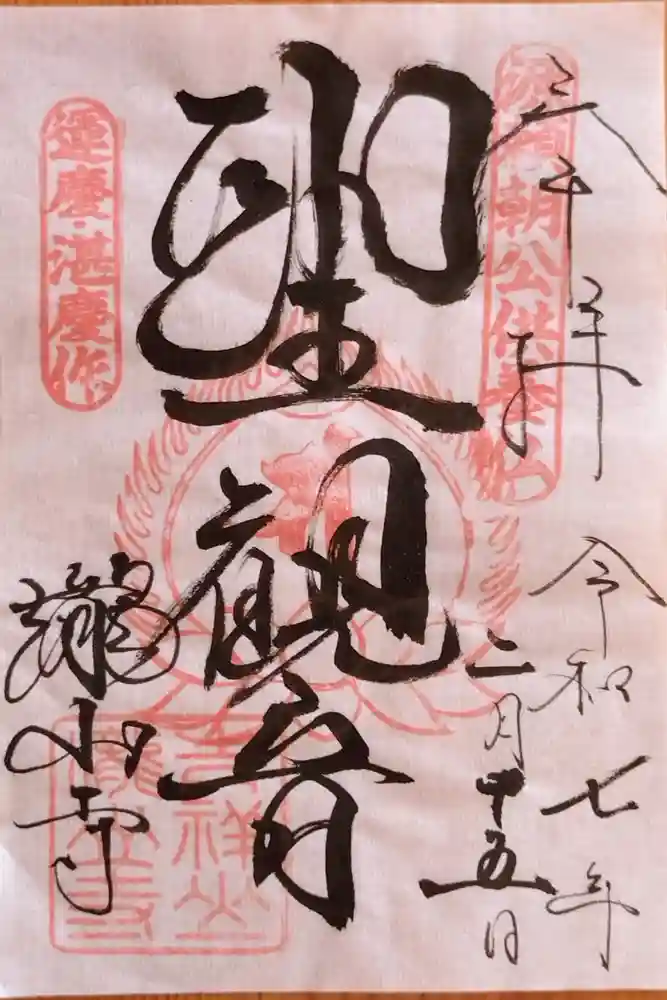 奉拝
源頼朝公供養仏
令和七年
二月十五日
聖観音
運慶・湛慶作
瀧山寺
吉祥山
瀧山寺